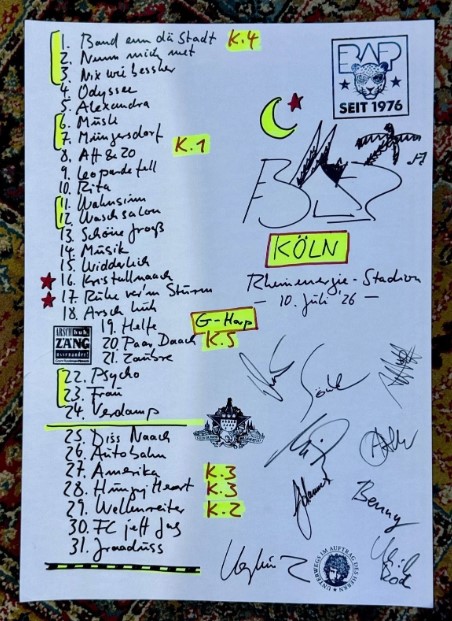 1. Band enn dä Stadt K.4
2. Nemm mich met
3. Nix wie bessher
4. Odyssee
5. Alexandra
6. Müsli
7. Müngersdorf K.1
8. Alt & 20
9. Leopardefell
10. Rita
11. Wahnsinn
12. Waschsalon
13. Schöne Jroß
14. Musik
15. Widderlich
16. Kristallnaach
17. Rühe vür'm Sturm
18. Arsch huh
19. Helfe G-Harp
20 Paar Daach K.5
21. Zaubre
22. Psycho
23. Frau
24. Verdamp
25. Diss Naach
26. Autobahn
27. Amerika K.3
28. Hungry Heart K.3
29. Wellenreiter K.2
30. FC jeff Jas
31. Jraaduss
BAP
SEIT 1976
BAP
KÖLN
Rheinenergie-Stadion
– 10. Juli '26 –
ARSCH huh
ZÄNG
ussenander!
Benny
UNTERWEGS IM AUFTRAG DES HERRN